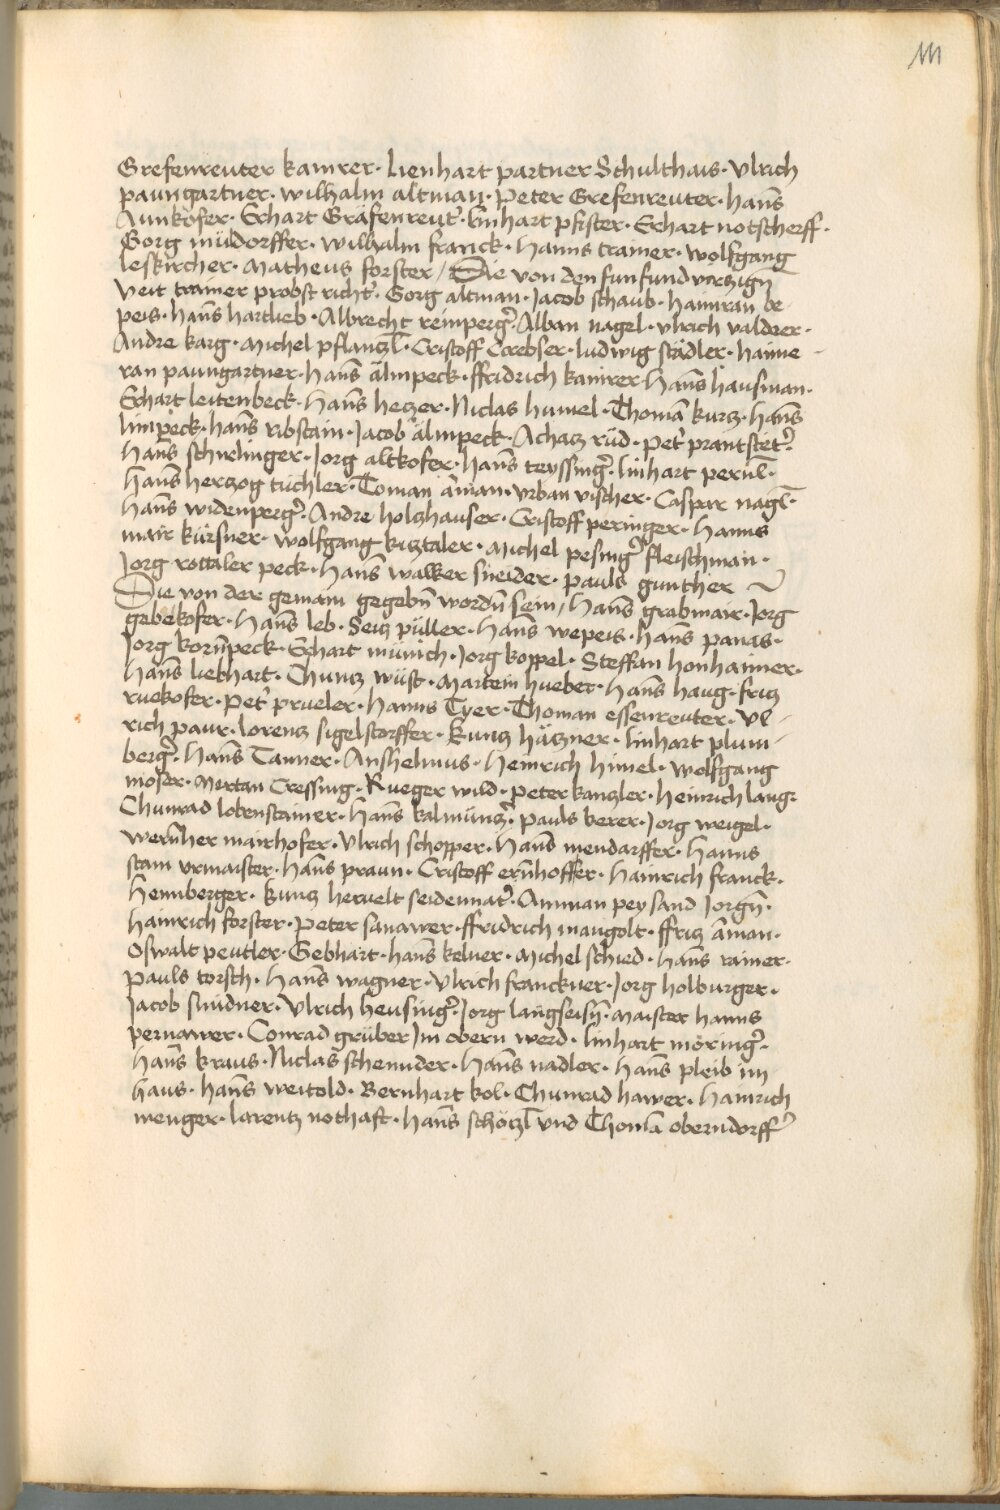 111
Grefenreuter kamrer · Lienhart partner Schulthais · Ulrich
paungartner · wilhalm altman · Peter Grefenreuter · hanns
Aunkofer · Erhart Gräfenreut' · linhart pfister · Erhart notscherff ·
Gorg müldorffer · wilhalm franck · Hanns trainer · wolfgang
leskircher · Matheus forster / Die von den funfundvirzign̄
Veit trainer probst richt' · Gorg altman · Jacob schaub · hamran be
peis · hanns hartlieb · Albrecht reinperg' · Alban nagel · Ulrich valdrer ·
Andre karg · Michel pflantzl · Cristoff Crebser · ludwig städler · haime
ran paungartner · hanns älmpeck · ffridrich kamrer hanns hausman ·
Erhart leitenbeck · hanns hetzer · Niclas humel · Thoman kurtz · hanns
linpeck · hanns ribstain · Jacob älmpeck · Achatz rüd · pet' prantstet' ·
hanns schirlinger · Jorg altkofer · hanns teyssing' · linhart perül ·
hanns hertzog tüchler · Toman aman · Urban vischer · Caspar nagl ·
hanns widenperg' · Andre holtzhauser · Cristoff peringer · hanns
mair kürsner · wolfgang kitztaler · Michel pesing' fleischman ·
Jorg rottaler peck · hanns walker sneider · pauls gunther
Die von der gemain gegebn̄ wordn̄ sein / hanns grabmair · Jorg
gebekofer · hanns leb · Seitz püller · hanns wepeis · hanns panas ·
Jorg kornpeck · Erhart münich · Jorg koppel · Steffan honhaimer ·
hanns liebhart · Chuntz wüst · Martein hueber · hanns haug · fritz
ruekofer · Pet' prueler · hanns Tyer · Thoman essenreuter · Ul
rich paur · lorentz sigelstorffer · kuntz hätzner · linhart plum
berg' · hanns Tanner · Anshelmus · heinrich himel · wolfgang
moser · Mertan Cressing · Rueger wild · Peter kantzler · heinrich lang ·
Chunrad lobenstainer · hanns kalmüntz' · pauls berer · Jorg weigel ·
wernher mairhofer · Ulrich schopper · hanns mendarffer · hanns
stain urmaister · hanns praun · Cristoff ernhoffer · hainrich franck ·
hennberger · kuntz hertelt seidennat' · Amman pey sand Jorgn̄ ·
hainrich forster · Peter sanawer · ffridrich mangolt · ffritz aman ·
Oswalt peutler · Gebhart · hanns kelner · Michel schied · hanns rainer ·
Pauls torsch · hanns wagner · Ulrich franckner · Jorg holburger ·
Jacob smidner · Ulrich heusing' · Jorg langseisn̄ · Maister hanns
pernawer · Conrad grüber Im obern werd · linhart möring' ·
hanns kraus · Niclas schennder · hanns nadler · hanns pleib im
haus · hanns weitold · Bernhart kol · Chunrad hawer · hainrich
menger · larentz nothaft · hanns schötzl und Thoman oberndorff'